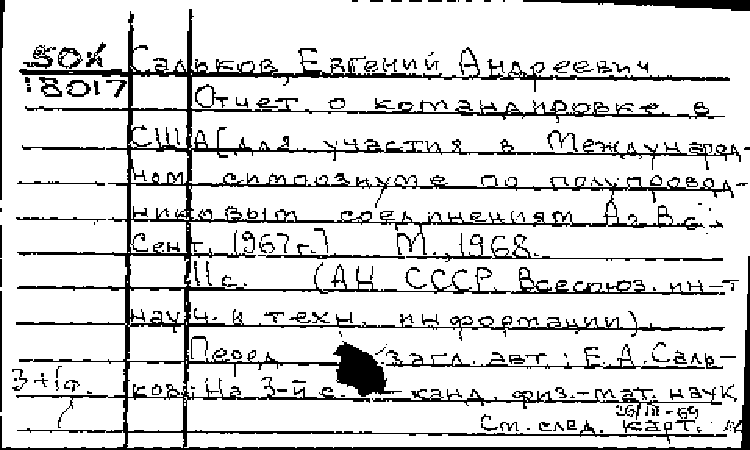 50к
18017
Сальков, Евгений Андреевич
Отчет о командировке в
США [для участия в Международ-
ном симпозиуме по полупровод-
никовым соединениям A₂B₆.
Сент. 1967 г.] М., 1968.
11 с. (АН СССР. Всесоюз. ин-т
науч. и техн. информации).
Перед загл. авт.: Е.А. Саль-
ков. На 3-й с. – канд. физ.-мат. наук.
3+1ф.
26/III-69
См. след. карт.